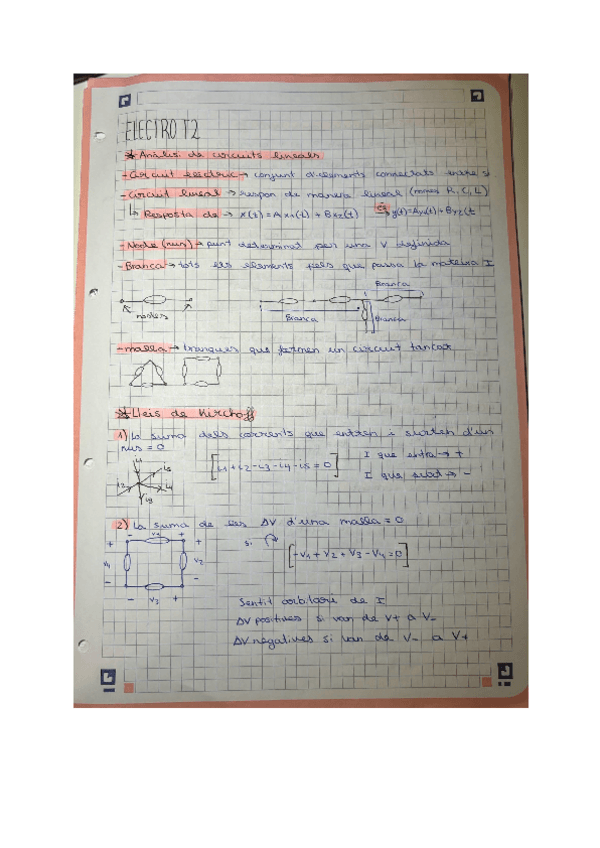 ELECTRO T2
* Anàlisi de circuits lineals
- Circuit elèctric → conjunt d'elements connectats entre si
- Circuit lineal → respon de manera lineal (només R, C, L)
↳ Resposta de → x(t) = Ax₁(t) + Bx₂(t) és y(t) = Ay₁(t) + By₂(t
- Node (nus) → punt determinat per una V definida
- Branca → tots els elements pels que passa la mateixa I
Branca
nodes
Branca
Branca
- malla → branques que formen un circuit tancat
* Lleis de Kirchoff
1) La suma dels corrents que entren i surten d'un
nus = 0
[i1 + i2 - i3 - i4 - i5 = 0]
I que entra → +
I que surt → -
i1
i5
i2
i4
i3
2) La suma de les ΔV d'una malla = 0
- V4 +
+ V1 -
+ V2 -
- V3 +
si
[-V1 + V2 + V3 - V4 = 0]
Sentit arbitrari de I
ΔV positives si van de V+ a V-
ΔV negatives si van de V- a V+